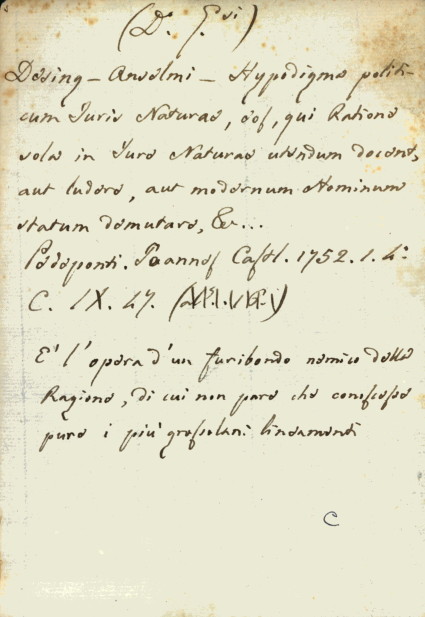 (D. G.si)
Desing – Anselmi – Hypodigma politi-
cum Juris Naturae, eos, qui Ratione
sola in Jure Naturae utendum docent,
aut ludere, aut modernum Hominum
statum demutare, &c...
Pedeponti. Joannes Gastl. 1752. 1. 4°
C. IX. 47.
E' l'opera d'un furibondo nemico della
Ragione, di cui non pare che conoscesse
pure i più grossolani lineamenti
C